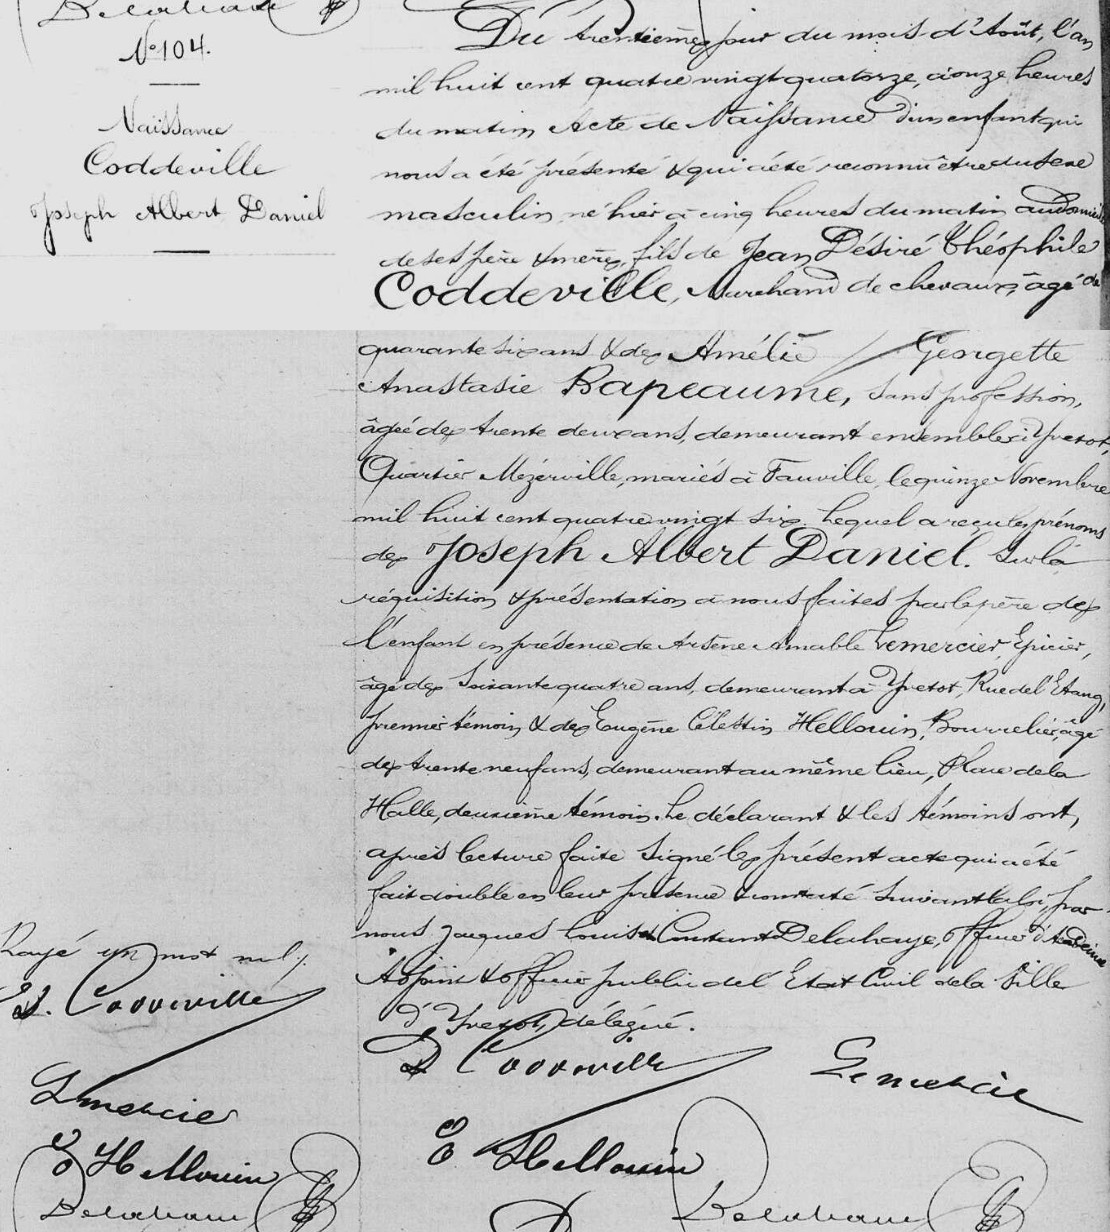 Delahaye
N° 104.
Naissance
Coddeville
Joseph Albert Daniel
Du trentième jour du mois d'Août, l'an
mil huit cent quatre vingt quatorze, à onze heures
du matin, Acte de Naissance d'un enfant qui
nous a été présenté & qui a été reconnu être du sexe
masculin, né hier à cinq heures du matin au domicile
de ses père & mère, fils de Jean Désiré Théophile
Coddeville, Marchand de chevaux, âgé de
quarante six ans & de Amélie Georgette
Anastasie Bapeaume, sans profession,
âgée de trente deux ans, demeurant ensemble à Yvetot,
Quartier Mézerville, mariés à Fauville, le quinze Novembre
mil huit cent quatre vingt six. Lequel a reçu les prénoms
de Joseph Albert Daniel. Sur la
réquisition & présentation à nous faites par le père de
l'enfant en présence de Arsène Aimable Lemercier, Epicier,
âgé de soixante quatre ans, demeurant à Yvetot, Rue de l'Etang,
premier témoin & de Eugène Célestin Hellouin, Bourrelier, âgé
de trente neuf ans, demeurant au même lieu, Place de la
Halle, deuxième témoin. Le déclarant & les témoins ont,
après lecture faite signé le présent acte qui a été
fait double en leur présence & constaté suivant la loi, par
nous Jacques Louis Constant Delahaye, officier d'Académie
Adjoint & officier public de l'Etat Civil de la Ville
d'Yvetot, délégué.
Rayé un mot nul.
D. Coddeville
Lemercier
E Hellouin
Delahaye
D Coddeville
Lemercier
E Hellouin
Delahaye